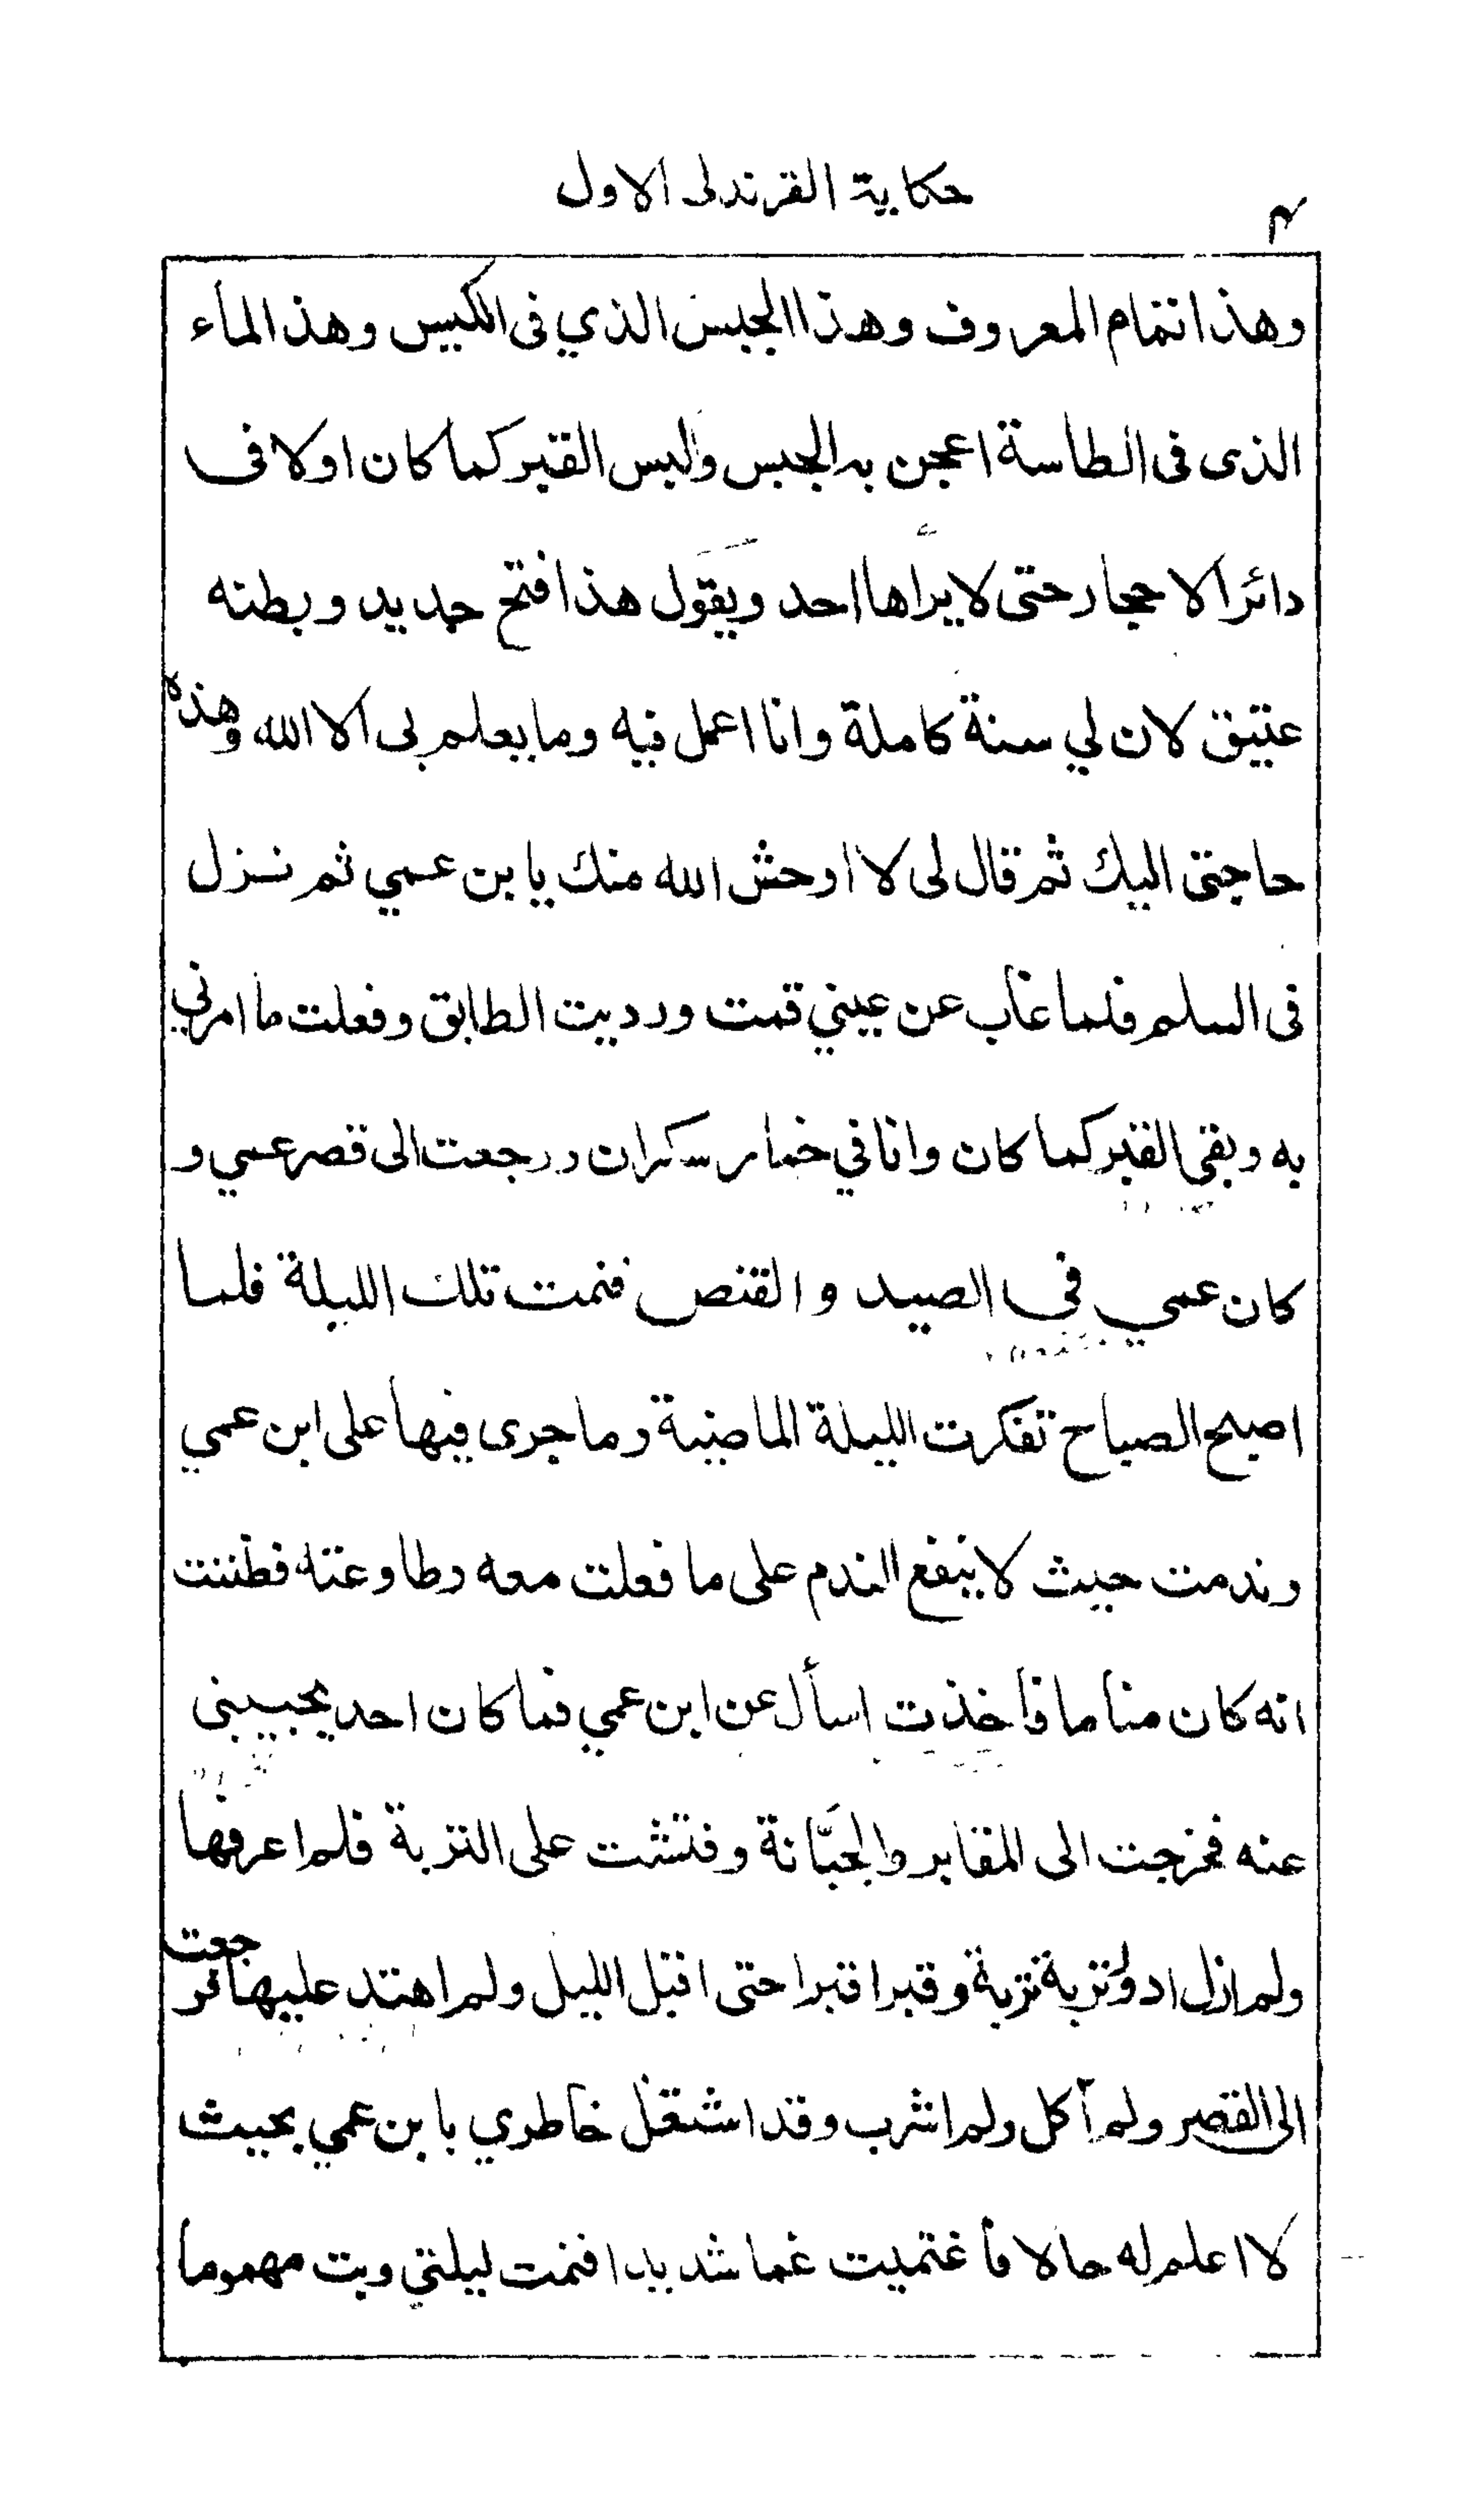 حكاية القرندلى الاول
٣
وهذا تمام المعروف وهذا الجبس الذي فى الكيس وهذ الماء
الذى فى الطاسة اعجن به الجبس والبس القبر كما كان اولا فى
دائر الاحجار حتى لا يراها احد ويقول هذا فتح جديد وبطنه
عتيق لان لي سنة كاملة وانا اعمل فيه وما يعلم بى الا الله وهذه
حاجتى اليك ثم قال لى لا اوحش الله منك يا بن عمي ثم نزل
فى السلم فلما غاب عن عيني قمت ورديت الطابق وفعلت ما امرني
به وبقى القبر كما كان وانا في خمار سكران ورجعت الى قصر عمي و
كان عمي في الصيد والقنص فنمت تلك الليلة فلما
اصبح الصباح تفكرت الليلة الماضية وما جرى فيها على ابن عمي
وندمت حيث لا ينفع الندم على ما فعلت معه وطاوعته فظننت
انه كان مناما فاخذت اسأل عن ابن عمي فما كان احد يجيبنى
عنه فخرجت الى المقابر والجبَّانة وفتشت على التربة فلم اعرفها
ولم ازل ادور تربة تربة وقبرا قبرا حتى اقبل الليل ولم اهتد عليها فرجعت
الى القصر ولم آكل ولم اشرب وقد اشتغل خاطري بابن عمي بحيث
لا اعلم له حالا فأغتميت غما شديدا فنمت ليلتي وبت مهموما